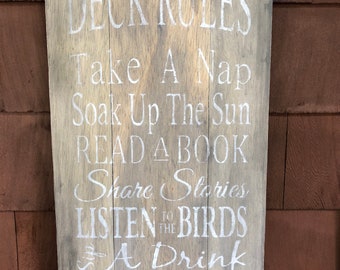 DECK RULES
Take A Nap
Soak Up The Sun
READ A BOOK
Share Stories
LISTEN TO THE BIRDS
A Drink